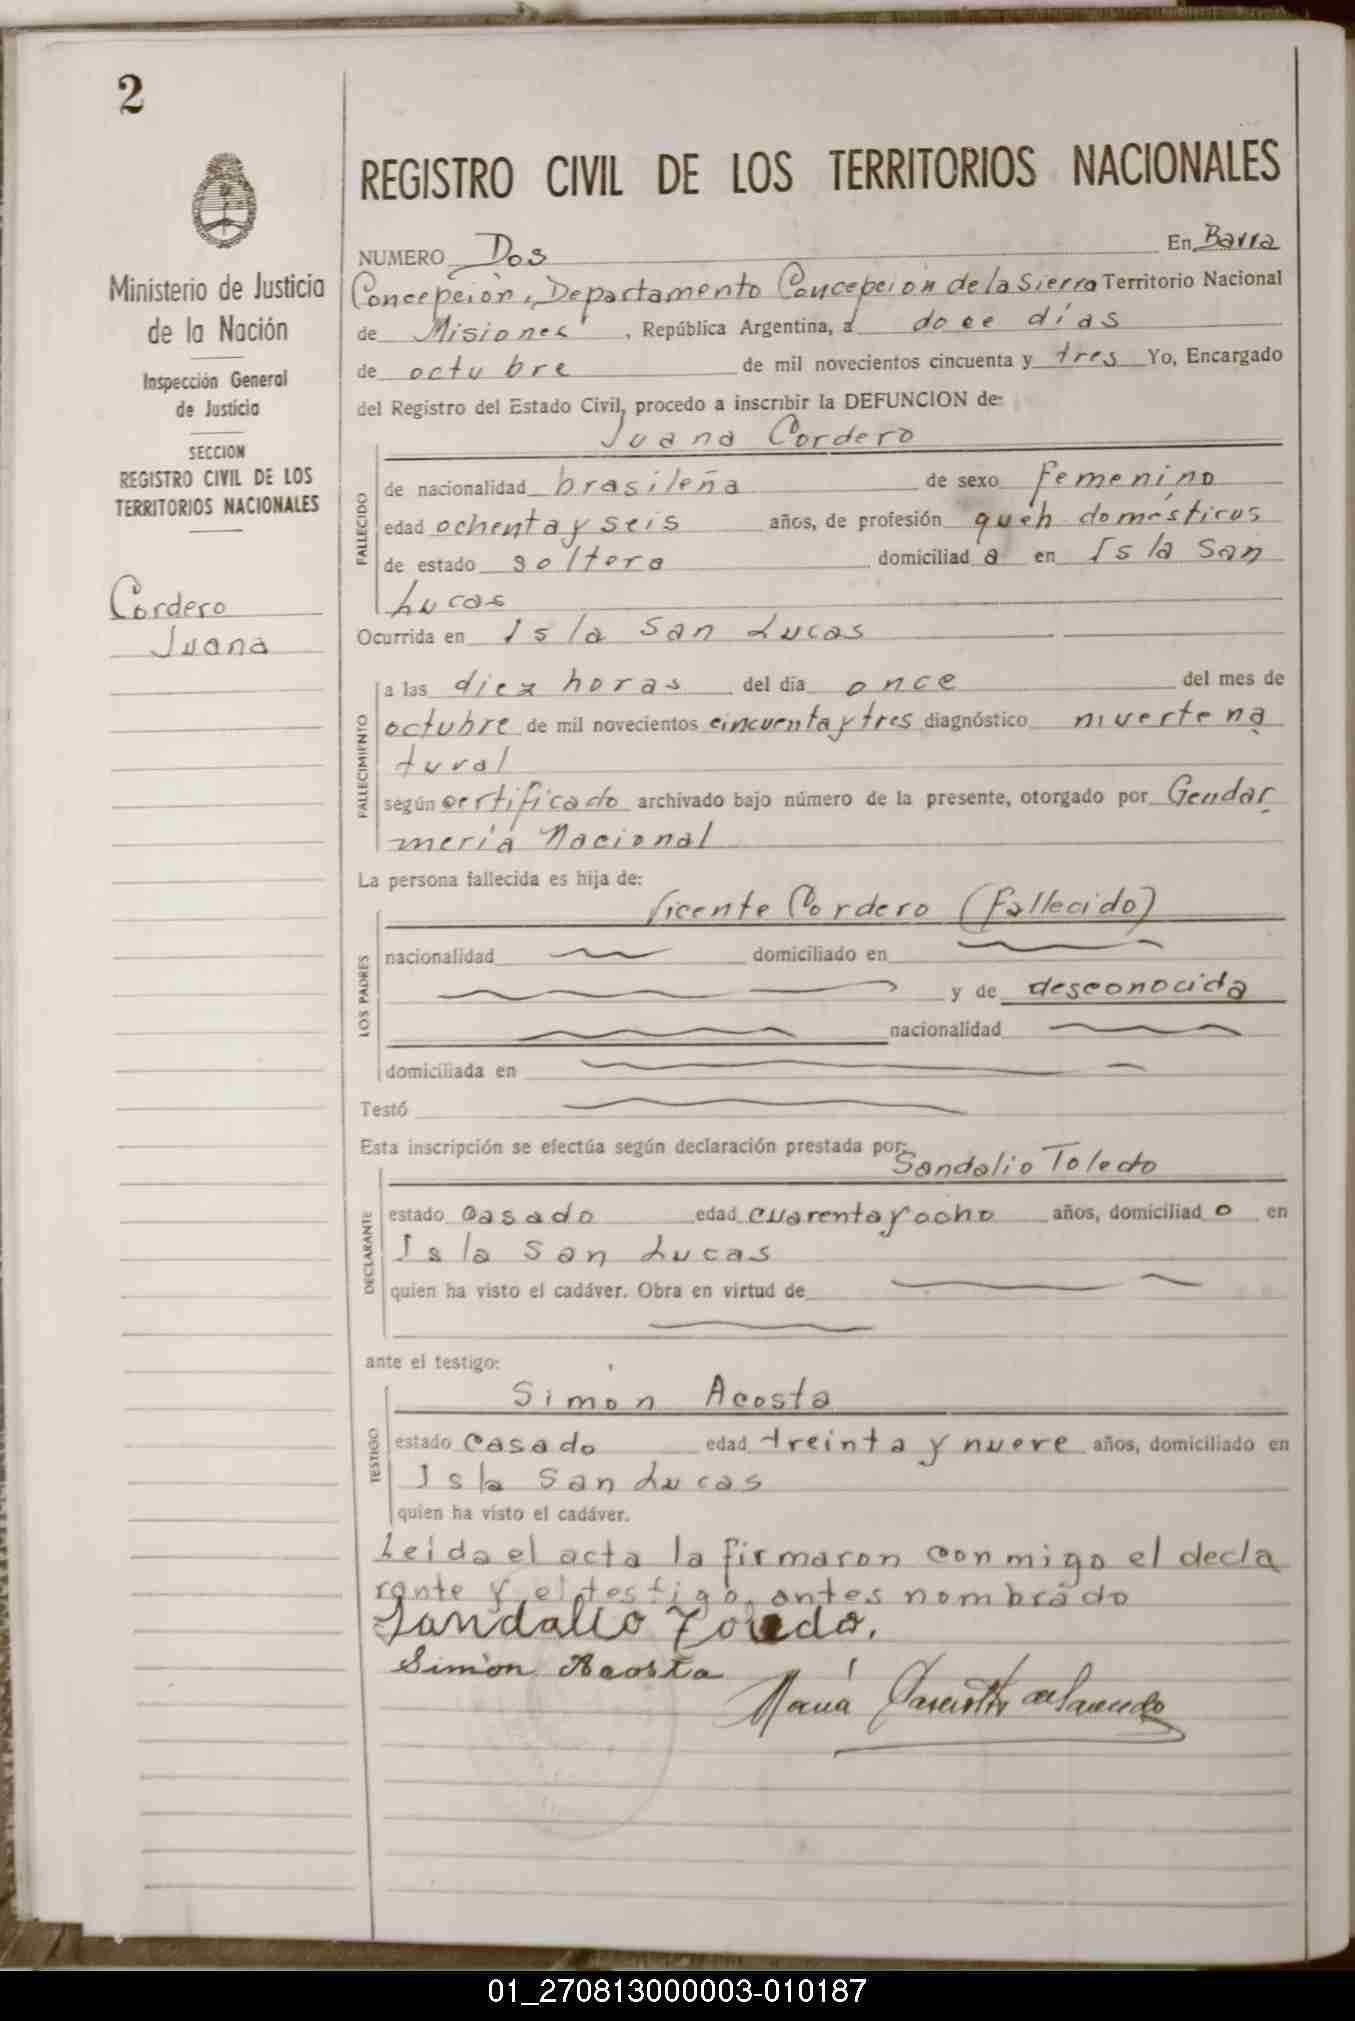 2
Ministerio de Justicia
de la Nación
Inspección General
de Justicia
SECCION
REGISTRO CIVIL DE LOS
TERRITORIOS NACIONALES
Cordero
Juana
REGISTRO CIVIL DE LOS TERRITORIOS NACIONALES
NUMERO Dos En Barra
Concepción, Departamento Concepción de la Sierra Territorio Nacional
de Misiones, República Argentina, a doce días
de octubre de mil novecientos cincuenta y tres Yo, Encargado
del Registro del Estado Civil, procedo a inscribir la DEFUNCION de:
Juana Cordero
FALLECIDO
de nacionalidad brasileña de sexo femenino
edad ochenta y seis años, de profesión queh domésticos
de estado soltera domiciliad a en Isla San
Lucas
Ocurrida en Isla San Lucas
FALLECIMIENTO
a las diez horas del día once del mes de
octubre de mil novecientos cincuenta y tres diagnóstico muerte na
tural
según certificado archivado bajo número de la presente, otorgado por Gendar
mería Nacional
La persona fallecida es hija de:
Vicente Cordero (Fallecido)
LOS PADRES
nacionalidad domiciliado en
y de desconocida
nacionalidad
domiciliada en
Testó
Esta inscripción se efectúa según declaración prestada por:
Sandalio Toledo
DECLARANTE
estado casado edad cuarenta y ocho años, domiciliad o en
Isla San Lucas
quien ha visto el cadáver. Obra en virtud de
ante el testigo:
Simón Acosta
TESTIGO
estado casado edad treinta y nueve años, domiciliado en
Isla San Lucas
quien ha visto el cadáver.
Leida el acta la firmaron conmigo el decla
rante y el testigo, antes nombrado
Sandalio Toledo.
Simón Acosta
María
01_270813000003-010187